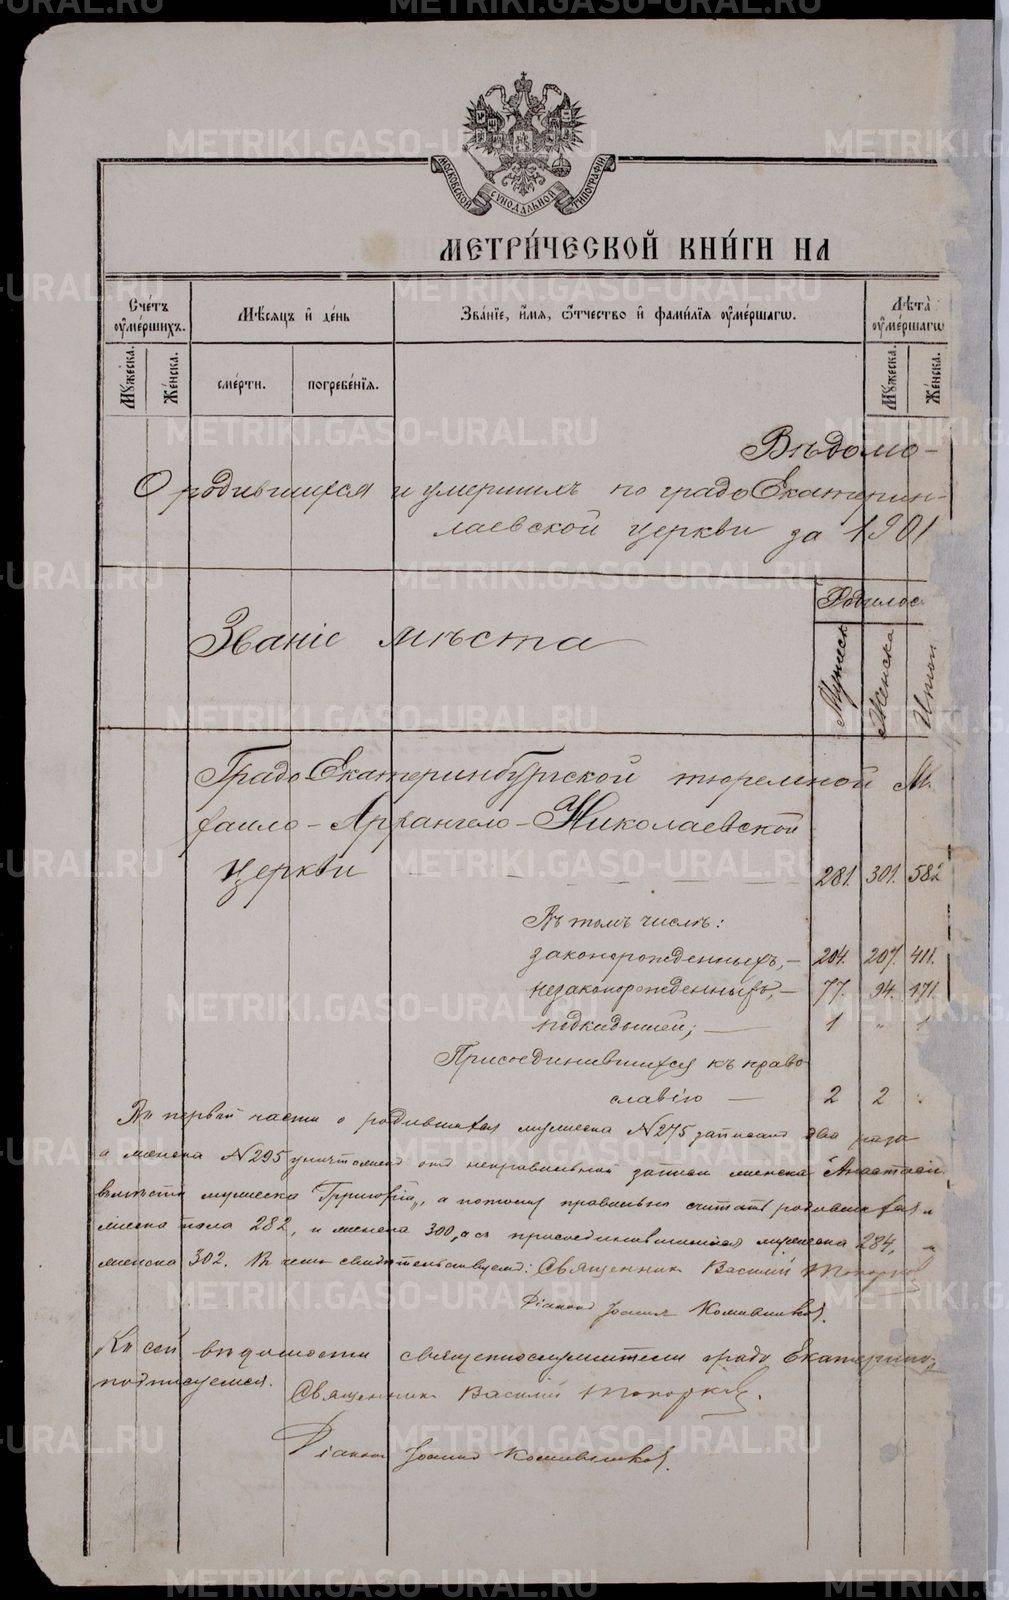 МОСКОВСКОЙ СУНОДАЛЬНОЙ ТИПОГРАФІИ
МЕТРИ́ЧЕСКОЙ КНИ́ГИ НА
Сче́тъ ѹме́ршихъ.
Мѣ́сяцъ и҆ де́нь
Зва́нїе, и҆́мя, ѻ҆́тчество и҆ фами́лїя ѹме́ршагѡ.
Лѣта̀ ѹме́ршагѡ
Мꙋ́жеска.
Же́нска.
сме́рти.
погребе́нїя.
Мꙋ́жеска.
Же́нска.
Вѣдомо-
О родившихся и умершихъ по градо Екатерин-
лаевской церкви за 1901
Званіе мѣста
Родилос
Мужеск
Женска
Итого
Градо Екатеринбургской тюремной Ми
хаило-Архангело-Николаевской
церкви 281. 301. 582
Въ томъ числѣ:
законорожденныхъ,- 204. 207. 411.
незаконорожденныхъ,- 77. 94. 171.
подкидышей; - 1 " 1
Присоединившихся къ право
славію - 2 2
Въ первой части о родившихся мужеска №275 записанъ два раза
а женска №295 уничтоженъ отъ неправильной записи женска "Анастасіи
вмѣсто мужеска "Григорій", а потому правильно считать родившихся м
жеска пола 282, и женска 300, а съ присоединившимися мужеска 284, и
женска 302. В чемъ свидѣтельствуемъ: Священникъ Василій Топорковъ
Діаконъ Іоаннъ
Къ сей вѣдомости священнослужители градо Екатеринб
подписуемся. Священникъ Василій Топорковъ.
Діаконъ Іоаннъ
METRIKI.GASO-URAL.RU